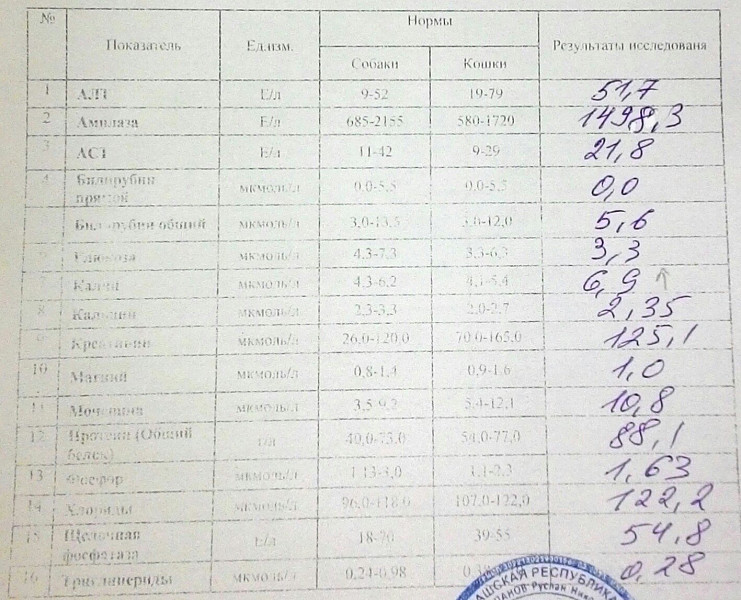 № Показатель Ед.изм. Нормы Результаты исследованя
Собаки Кошки
1 АЛТ Е/л 9-52 19-79 51,7
2 Амилаза Е/л 685-2155 580-1720 1498,3
3 АСТ Е/л 11-42 9-29 21,8
4 Билирубин прямой мкмоль/л 0.0-5,5 0.0-5.5 0,0
Билирубин общий мкмоль/л 3,0-13,5 3.0-12,0 5,6
Глюкоза мкмоль/л 4.3-7.3 3.3-6.3 3,3
Калий мкмоль/л 4.3-6.2 4.1-5.4 6,9 ↑
8 Кальций мкмоль/л 2.3-3.3 2.0-2.7 2,35
9 Креатинин мкмоль/л 26,0-120,0 70.0-165.0 125,1
10 Магний мкмоль/л 0,8-1,4 0.9-1.6 1,0
11 Мочевина мкмоль/л 3,5-9.2 5.4-12.1 10,8
12 Протеин (Общий белок) г/л 40,0-75.0 54,0-77,0 88,1
13 Фосфор мкмоль/л 1.13-3,0 1,1-2.3 1,63
14 Хлориды мкмоль/л 96,0-118.0 107.0-122,0 122,2
15 Щелочная фосфатаза Е/л 18-70 39-55 54,8
16 Триглицериды мкмоль/л 0,24-0,98 0,28
АШСКАЯ РЕСПУБЛИКА
Руслан